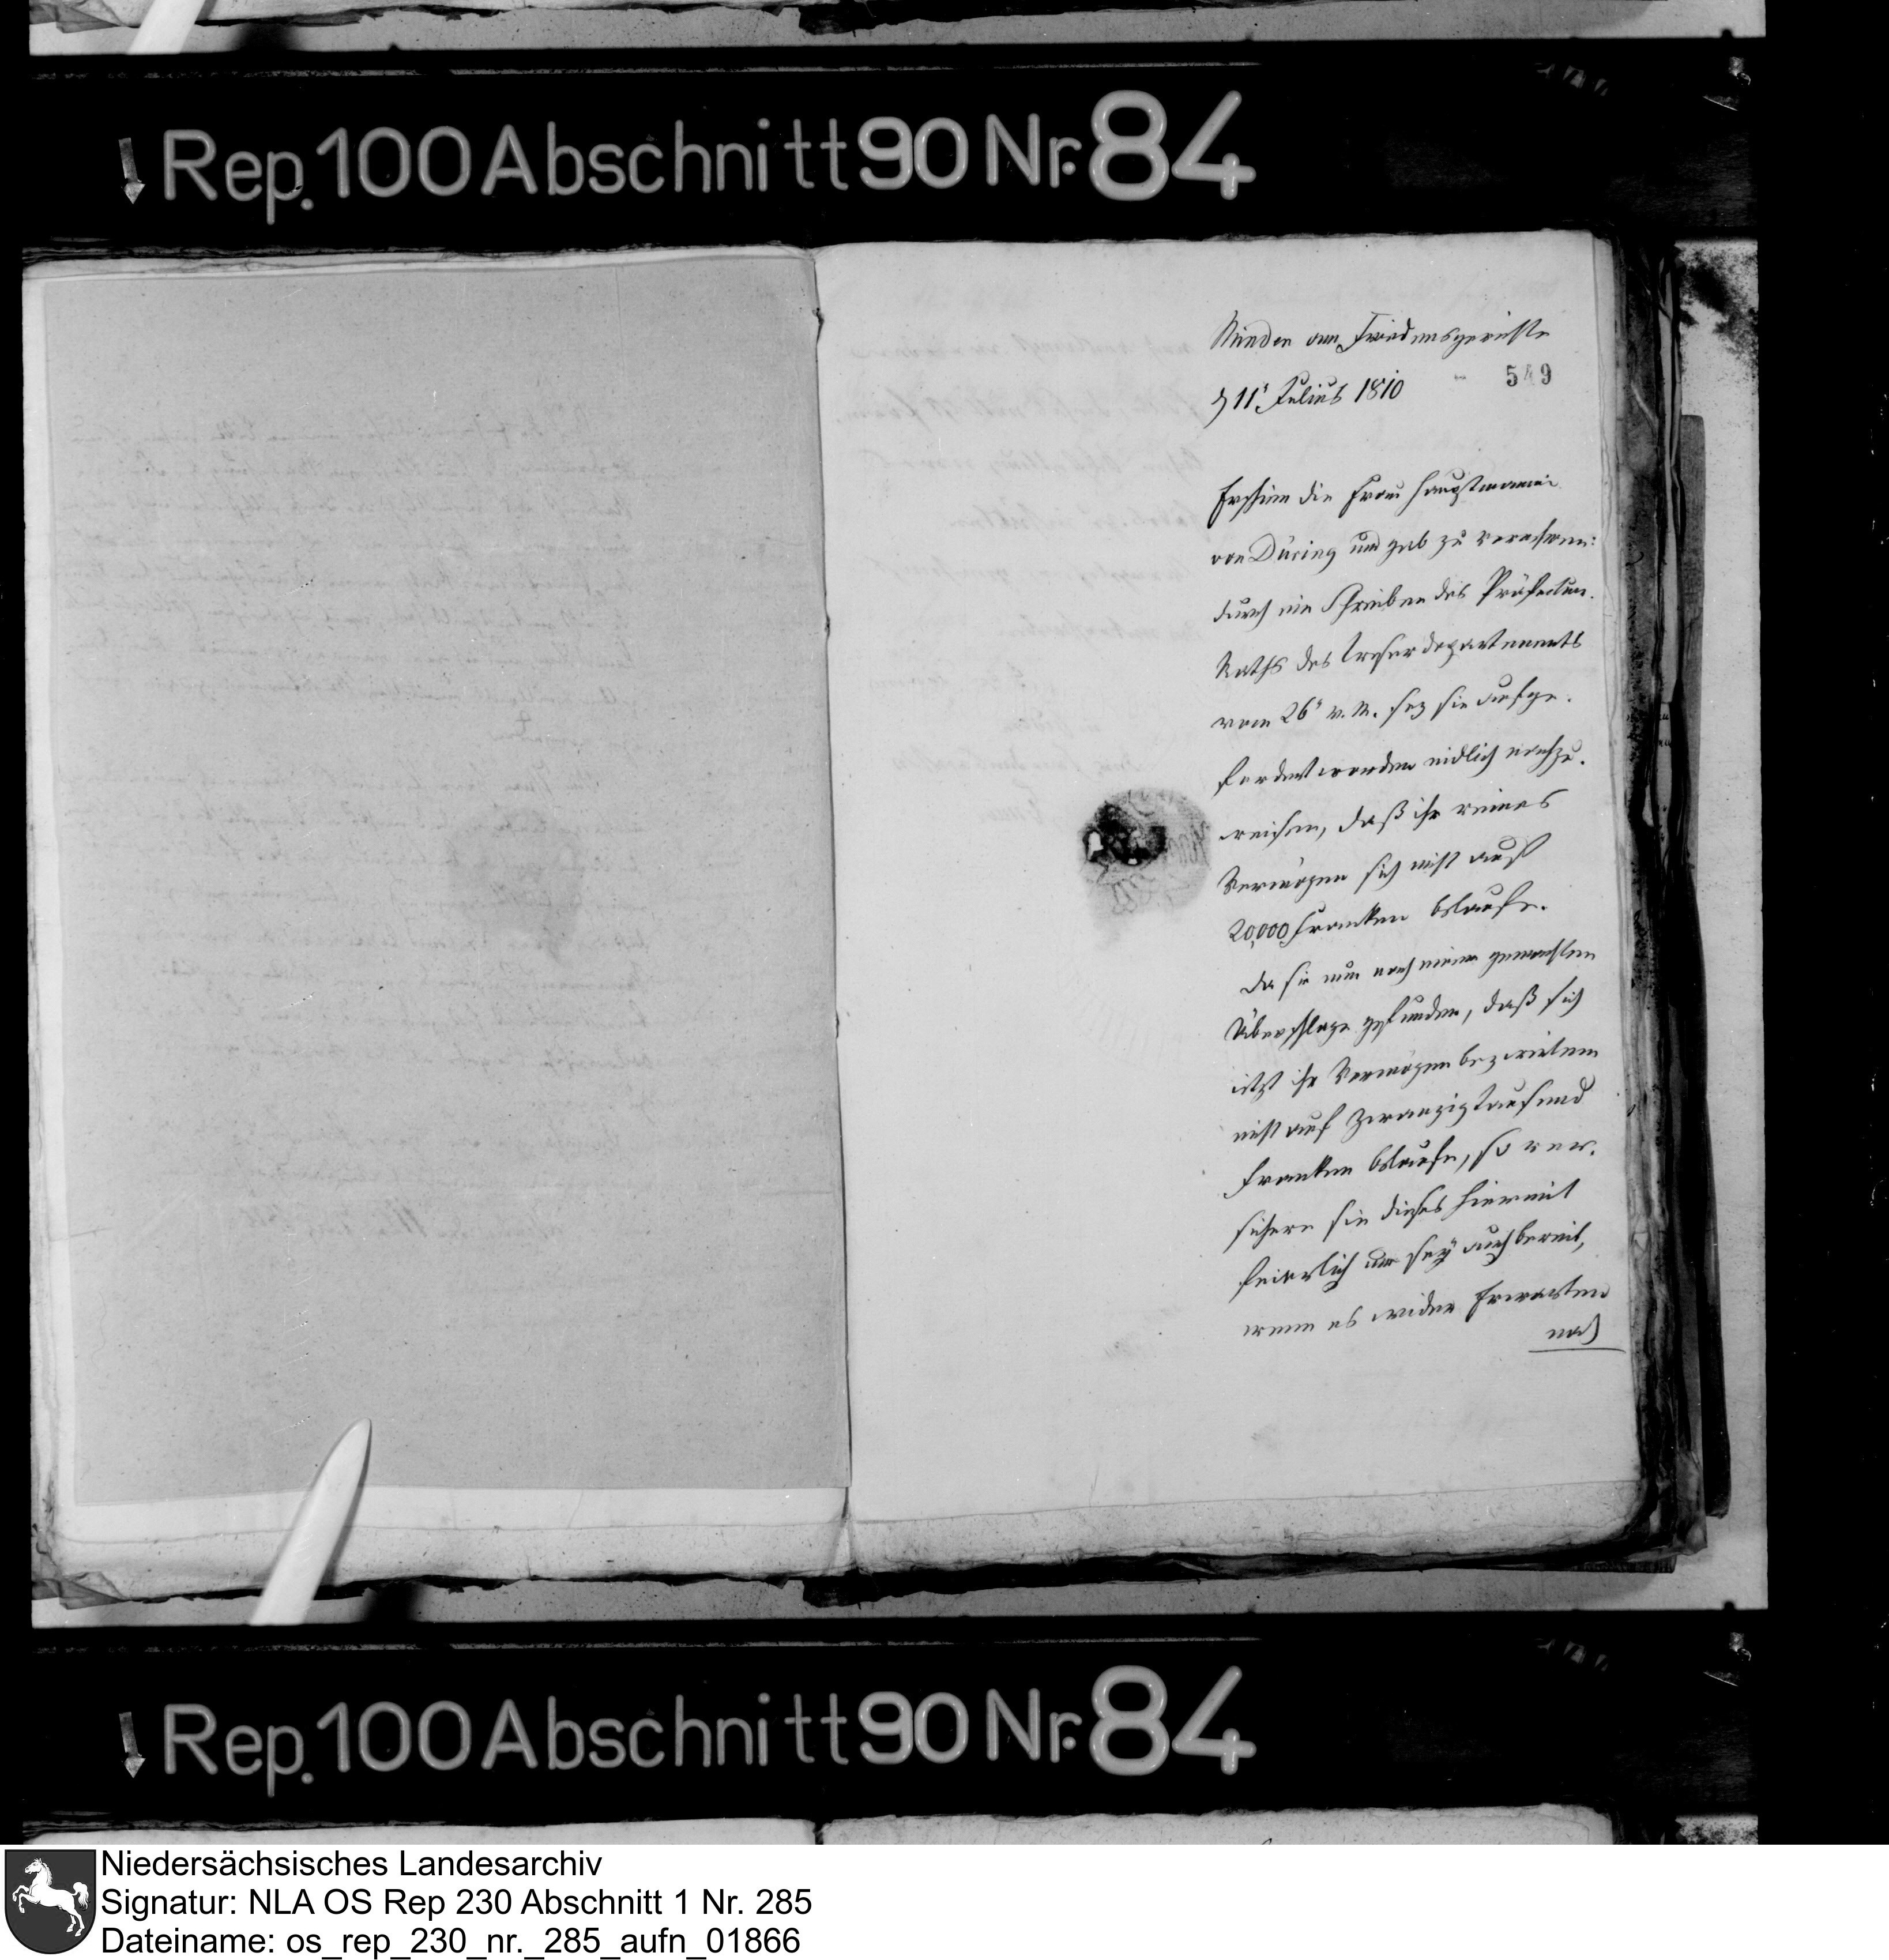 Rep. 100 Abschnitt 90 Nr. 84
Minden am Friedensgerichte
d 11t Julius 1810
549
Erschien die Frau Hauptmannin
von Düring und gab zu vernehmen:
durch ein Schreiben des Präfectur-
Raths des Weserdepartements
vom 26t v. M. sey sie aufge-
fordert worden eidlich nachzu-
weisen, daß ihr reines
Vermögen sich nicht auf
20,000 Franken belaufe.
Da sie nun nach einem gemachten
Überschlage gefunden, daß sich
itzt ihr Vermögen bey weitem
nicht auf Zwanzigtausend
Franken belaufe, so ver-
sichere sie dieses hiermit
feierlich und sey auch bereit,
wenn es wider Erwarten
noch
Rep. 100 Abschnitt 90 Nr. 84
Niedersächsisches Landesarchiv
Signatur: NLA OS Rep 230 Abschnitt 1 Nr. 285
Dateiname: os_rep_230_nr._285_aufn_01866